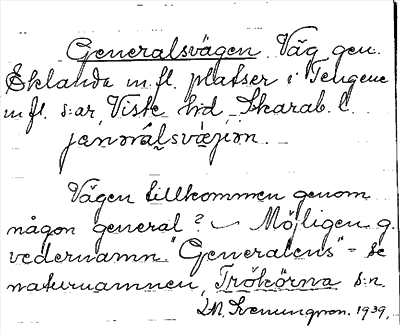 Generalsvägen. Väg gen.
Eklanda m.fl. platser i Tengene
m fl. s:ar, Viste hd, Skarab. l.
jenǝrálsvæ̀jǝn.
Vägen tillkommen genom
någon general? – Möjligen g.
vedernamn. "Generalens" – Se
naturnamnen, Trökörna s:n.
L.M. Svenungson. 1939.